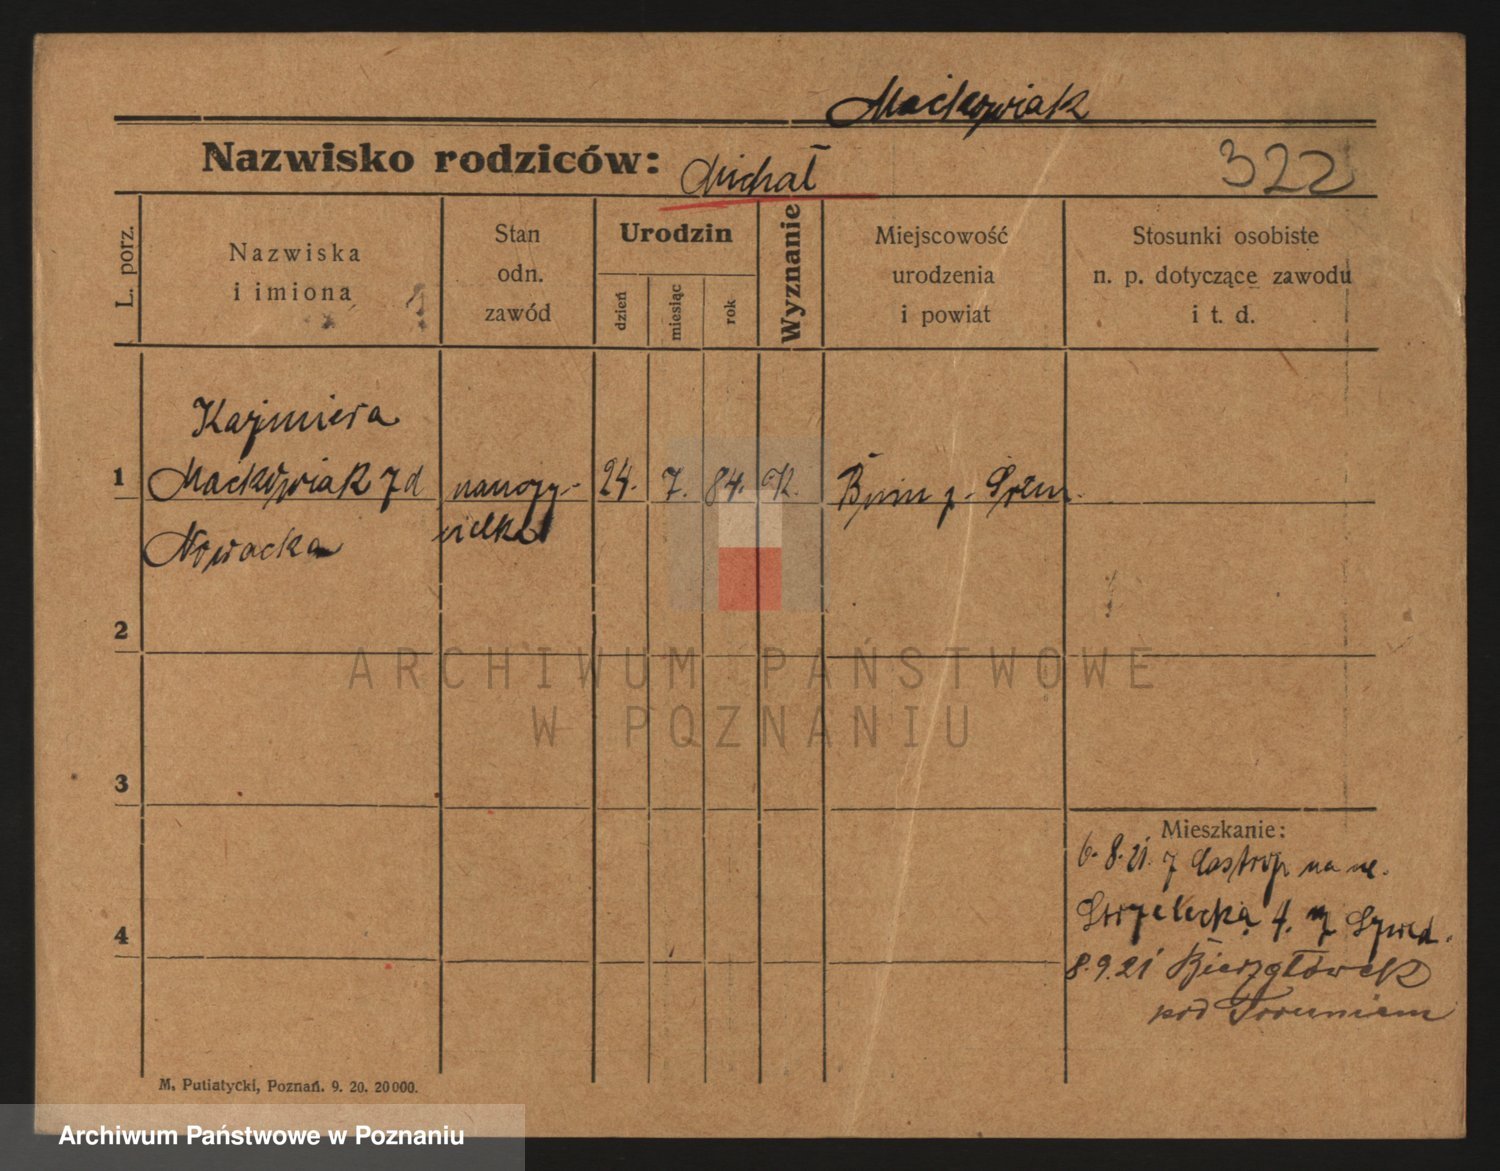 Maćkowiak
Nazwisko rodziców: Michał
322
L. porz.
Nazwiska
i imiona
Stan
odn.
zawód
Urodzin
dzień
miesiąc
rok
Wyznanie
Miejscowość
urodzenia
i powiat
Stosunki osobiste
n. p. dotyczące zawodu
i t. d.
Kazimiera
1 Maćkowiak z d nauczy- 24. 7. 84. K. Bnin p. Śrem.
Nowacka cielka
2
3
4
Mieszkanie:
6.8.21. z Castrop na ul.
Strzelecka 4. Szwed.
8.9.21 Bierzgłówek
pod Toruniem
M. Putiatycki, Poznań. 9. 20. 20000.
ARCHIWUM PAŃSTWOWE
W POZNANIU
Archiwum Państwowe w Poznaniu